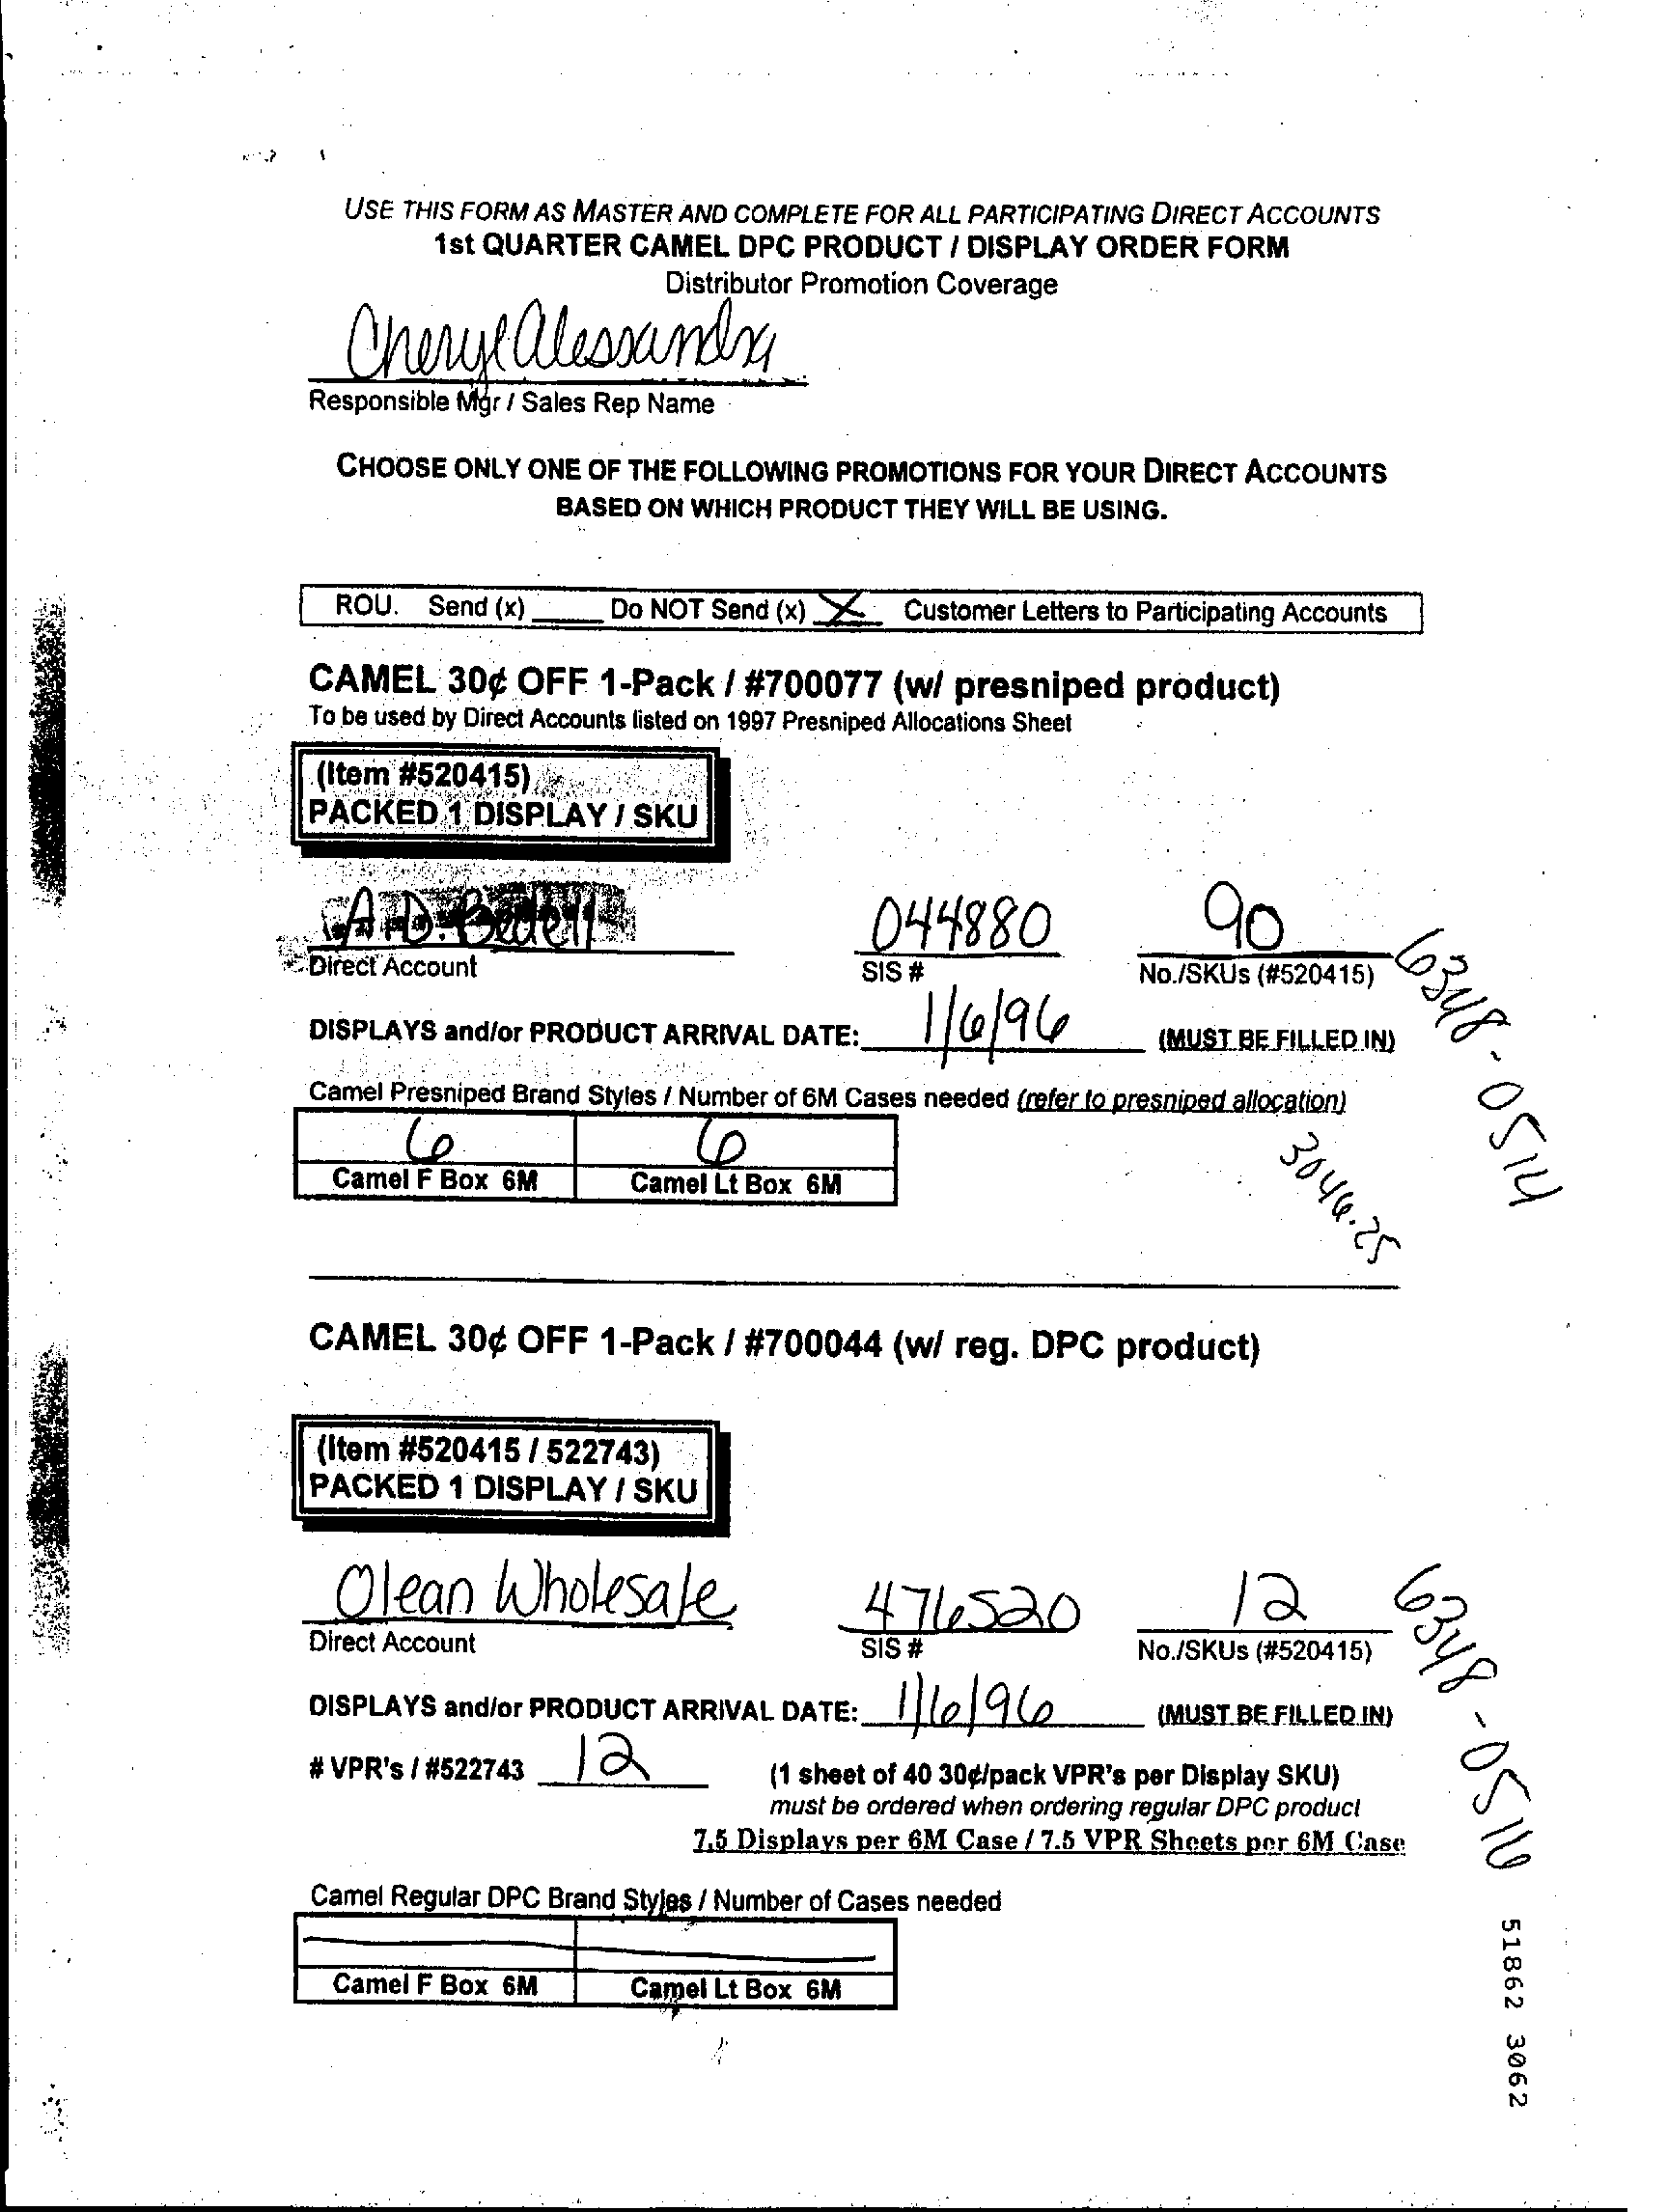 USE THIS FORM AS MASTER AND COMPLETE FOR ALL PARTICIPATING DIRECT ACCOUNTS
1st QUARTER CAMEL DPC PRODUCT / DISPLAY ORDER FORM
Distributor Promotion Coverage
Cheryl Alessandra
Responsible Mgr / Sales Rep Name
CHOOSE ONLY ONE OF THE FOLLOWING PROMOTIONS FOR YOUR DIRECT ACCOUNTS
BASED ON WHICH PRODUCT THEY WILL BE USING.
ROU. Send (x) ____ Do NOT Send (x) X Customer Letters to Participating Accounts
CAMEL 30¢ OFF 1-Pack / #700077 (w/ presniped product)
To be used by Direct Accounts listed on 1997 Presniped Allocations Sheet
(Item #520415)
PACKED 1 DISPLAY / SKU
A.D. Bedell 044880 90
Direct Account SIS # No./SKUs (#520415)
6348-0514
DISPLAYS and/or PRODUCT ARRIVAL DATE: 1/6/96 (MUST BE FILLED IN)
Camel Presniped Brand Styles / Number of 6M Cases needed (refer to presniped allocation)
6 6
Camel F Box 6M Camel Lt Box 6M
3046.25
CAMEL 30¢ OFF 1-Pack / #700044 (w/ reg. DPC product)
(Item #520415 / 522743)
PACKED 1 DISPLAY / SKU
Olean Wholesale 476520 12
Direct Account SIS # No./SKUs (#520415)
6348-0516
DISPLAYS and/or PRODUCT ARRIVAL DATE: 1/6/96 (MUST BE FILLED IN)
# VPR's / #522743 12 (1 sheet of 40 30¢/pack VPR's per Display SKU)
must be ordered when ordering regular DPC product
7.5 Displays per 6M Case / 7.5 VPR Sheets per 6M Case
Camel Regular DPC Brand Styles / Number of Cases needed
Camel F Box 6M Camel Lt Box 6M
51862 3062